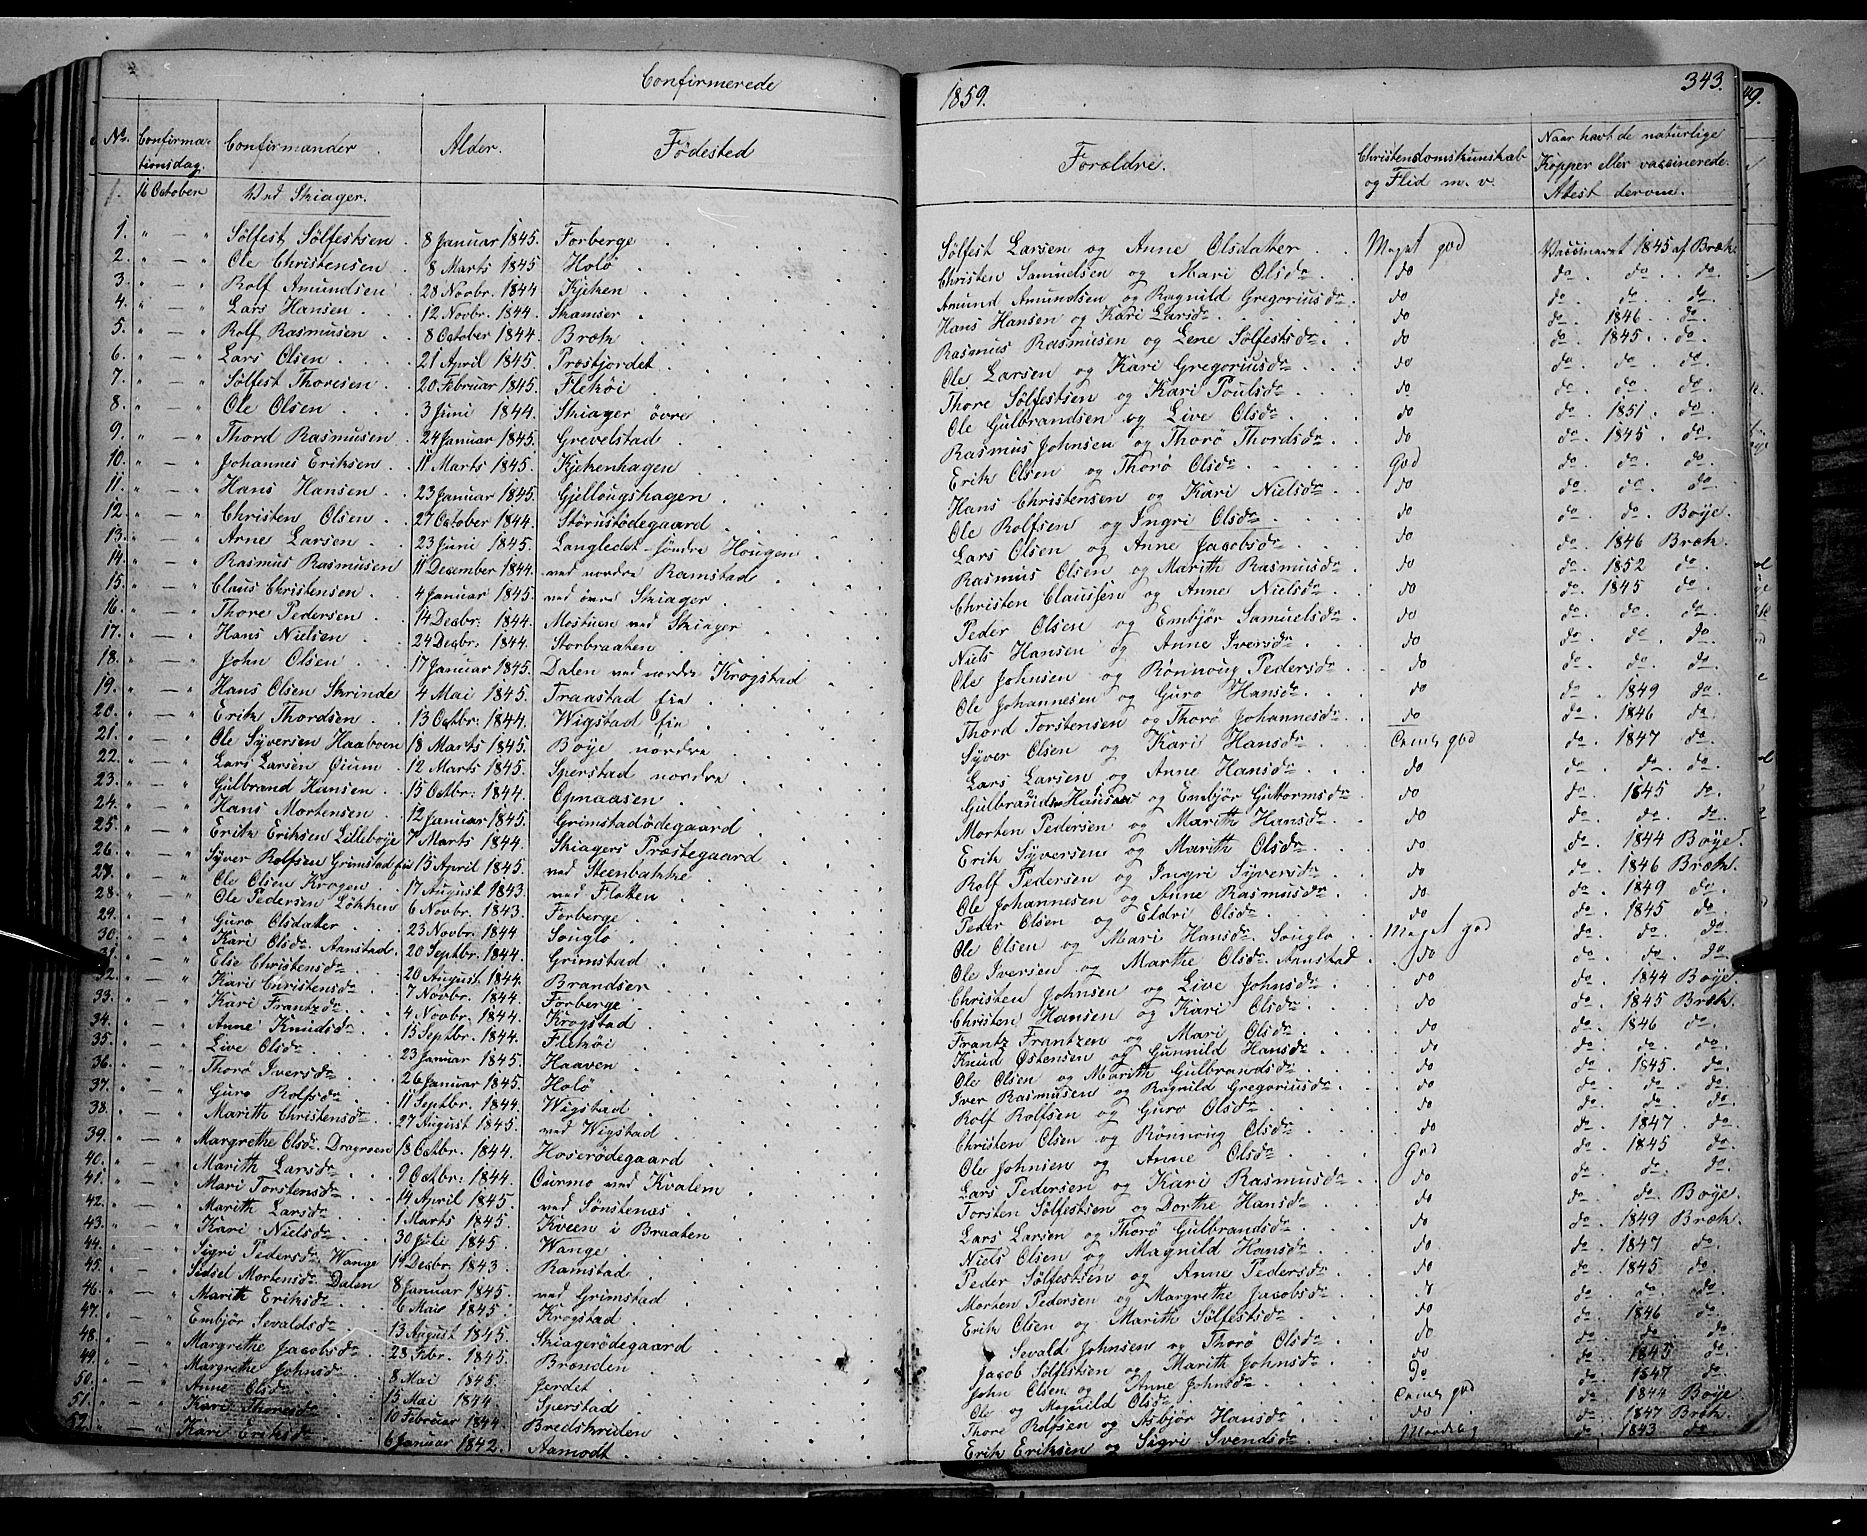 Confirmerede
1859. 343.
No. Confirmationsdag. Confirmander. Alder. Fødested Foraldre. Christendomskunskab og Flid m. v. Naar havt de naturlige Kopper eller vaccinerede. Atest derom.
16 October Ved Skiager.
1. " — " Sølfest Sølfestsen. 8 Januar 1845. Forberge Sølfest Larsen og Anne Olsdatter Meget god Vaccineret 1845 af Bræk.
2. " — " Ole Christensen. 8 Marts 1845 Holø Christen Samuelsen og Mari Olsdr. do do. do. do.
3. " — " Rolf Amundsen 28 Novbr. 1844 Kjeken Amund Amundsen og Ragnild Gregoriusdr. do do. do. do.
4. " — " Lars Hansen 12 Novbr. 1844. Skamser Hans Hansen og Kari Larsdr. do do. 1846 do.
5. " — " Rolf Rasmusen 8 October 1844. Bræk Rasmus Rasmusen og Lene Sølfestsdr. do do. 1845. do.
6. " — " Lars Olsen 21 April 1845. Prostjordet Ole Larsen og Kari Gregoriusdr. do do. do. do.
7. " — " Sølfest Thoresen 20 Februar 1845. Flekøi Thore Sølfestsen og Kari Poulsdr. do do. do. do.
8. " — " Ole Olsen 3 Juni 1844. Skiager övre Ole Gulbrandsen og Live Olsdr. do do. 1851. do.
9. " — " Thord Rasmusen 24 Januar 1845. Grevelstad Rasmus Johnsen og Thorø Thordsdr. do do. 1845. do.
10. " — " Johannes Eriksen 11 Marts 1845. Kjekenhagen Erik Olsen og Thorø Olsdr. God do. do. do.
11. " — " Hans Hansen 23 Januar 1845. Gjellougshagen Hans Christensen og Kari Nielsdr. do do. do. do.
12. " — " Christen Olsen 27 October 1844. Størustødegaard Ole Rolfsen og Ingri Olsdr. do do. do. Boye.
13. " — " Arne Larsen 23 Juni 1845. Langledet-søndre Hougen Lars Olsen og Anne Jacobsdr. do do. 1846 Bræk.
14. " — " Rasmus Rasmusen 11 December 1844. ved nordre Ramstad Rasmus Olsen og Marith Rasmusdr. do do. 1852 do.
15. " — " Claus Christensen 4 Januar 1845. ved övre Skiager Christen Clausen og Anne Nielsdr. do do. 1845 do.
16. " — " Thore Pedersen 14 Decbr. 1844. Mostuen ved Skiager Peder Olsen og Embjør Samuelsdr. do do. do. do.
17. " — " Hans Nielsen 24 Decbr. 1844. Storbraaten Niels Hansen og Anne Iversdr. do do. do. do.
18. " — " John Olsen 17 Januar 1845. Dalen ved nordre Krogstad Ole Johnsen og Rønnoug Pedersdr. do do. do. do.
19. " — " Hans Olsen Skrinde 4 Mai 1845. Traastad Ole Johannesen og Guro Hansdr. do do. 1849 do.
20. " — " Erik Thordsen 13 Octbr. 1844. Wigstad Thord Torstensen og Thorø Johannesdr. do do. 1846 do.
21. " — " Ole Syversen Haaboen 18 Marts 1845. Boye nordre Syver Olsen og Kari Hansdr. god do. 1847 do.
22. " — " Lars Larsen Øium 12 Marts 1845. Sperstad nordre Lars Larsen og Anne Hansdr. do do. do. do.
23. " — " Gulbrand Hansen 15 Octbr. 1844. Opnaasen Gulbrand Hansen og Embjør Guttormsdr. do do. 1845 do.
24. " — " Hans Mortensen 12 Januar 1845. Grimstadödegaard Morten Pedersen og Marith Hansdr. do do. do. do.
25. " — " Erik Eriksen Lilleboye 7 Marts 1844. Skiagers Præstegaard Erik Syversen og Marith Olsdr. do do. 1844 Boye.
26. " — " Syver Rolfsen Grimstad 15 April 1845. ved Steenbakke Rolf Pedersen og Ingri Syversdr. do do. 1846 Bræk.
27. " — " Ole Olsen Krogen 17 August 1843. ved Flotten Ole Johannesen og Anne Rasmusdr. do do. 1849 do.
28. " — " Ole Pedersen Løkken 6 Novbr. 1843. Forberge Peder Olsen og Eldri Olsdr. do do. 1845 do.
29. " — " Guro Olsdatter 23 Novbr. 1844 Souglø Ole Olsen og Mari Hansdr. Souglø Meget god do. do. do.
30. " — " Kari Olsdr. Aanstad 20 Septbr. 1844. Grimstad Ole Iversen og Marthe Olsdr. Aanstad do do. do. do.
31. " — " Elie Christensdr. 20 August 1844. Brandser Christen Johnsen og Live Johnsdr. do do. 1844 Boye.
32. " — " Kari Christensdr. 7 Novbr. 1844. Forberge Christen Hansen og Kari Olsdr. do do. 1845 Bræk.
33. " — " Kari Frantzdr. 4 Novbr. 1844. Krogstad Frantz Frantzen og Mari Olsdr. do do. 1846 do.
34. " — " Anne Knudsdr. 15 Septbr. 1844. Flekøi Knud Østensen og Gunnild Hansdr. do do. do. do.
35. " — " Live Olsdr. 23 Januar 1845. Haaven Ole Olsen og Marith Gulbrandsdr. do do. 1845. do.
36. " — " Thorø Iversdr. 26 Januar 1845. Holø Iver Rasmusen og Ragnild Gregoriusdr. do do. do. do.
37. " — " Guro Rolfsdr. 11 Septbr. 1844. Wigstad Rolf Rolfsen og Guro Olsdr. do do. do. do.
38. " — " Marith Christensdr. 27 August 1845. ved Wigstad Christen Olsen og Rønnoug Olsdr. do do. 1847. do.
39. " — " Margrethe Olsdr. Dragroen 18 Octbr. 1844. Hoserødegaard Ole Johnsen og Anne Olsdr. God do. 1845 do.
40. " — " Marith Larsdr. 9 Octbr. 1844. Ourmo ved Kvalem Lars Pedersen og Kari Rasmusdr. do do. do. do.
41. " — " Mari Torstensdr. 14 April 1845. ved Sønstenæs Torsten Sølfestsen og Dorthe Hansdr. do do. do. Boye.
42. " — " Marith Larsdr. 1 Marts 1845. Kveen i Braaten Lars Larsen og Thorø Gulbrandsdr. do do. 1849 Bræk.
43. " — " Kari Nielsdr. 30 Juli 1845. Wange Niels Olsen og Magnild Hansdr. do do. 1847 do.
44. " — " Sigri Pedersdr. Wange 19 Decbr. 1843. Ramstad Peder Sølfestsen og Anne Pedersdr. do do. 1845 do.
45. " — " Sidsel Mortensdr. Dalen 8 Januar 1845. ved Grimstad Morten Pedersen og Margrethe Jacobsdr. do. do. do.
46. " — " Marith Eriksdr. 6 Mai 1845. Krogstad Erik Olsen og Marith Sølfestsdr. do do. 1846 do.
47. " — " Embjør Sevaldsdr. 13 August 1845. Skiagerødegaard Sevald Johnsen og Thorø Olsdr. do do. do. do.
48. " — " Margrethe Jacobsdr. 28 Febr. 1845. Brønden Jacob Sølfestsen og Marith Johnsdr. do do. 1845 do.
49. " — " Margrethe Johnsdr. 8 Mai 1845. Jerdet John Olsen og Anne Johnsdr. do do. 1847 do.
50. " — " Anne Olsdr. 15 Mai 1844. Sperstad Ole og Magnild Olsdr. god do. 1844 Boye
51. " — " Kari Thoresdr. 10 Februar 1844. Bredskriden Thore Rolfsen og Asbjør Hansdr. do do. 1847 Bræk.
52. " — " Kari Eriksdr. 6 Januar 1842. Aamodt Erik Eriksen og Sigri Svendsdr. Maadelig do. 1843 do.